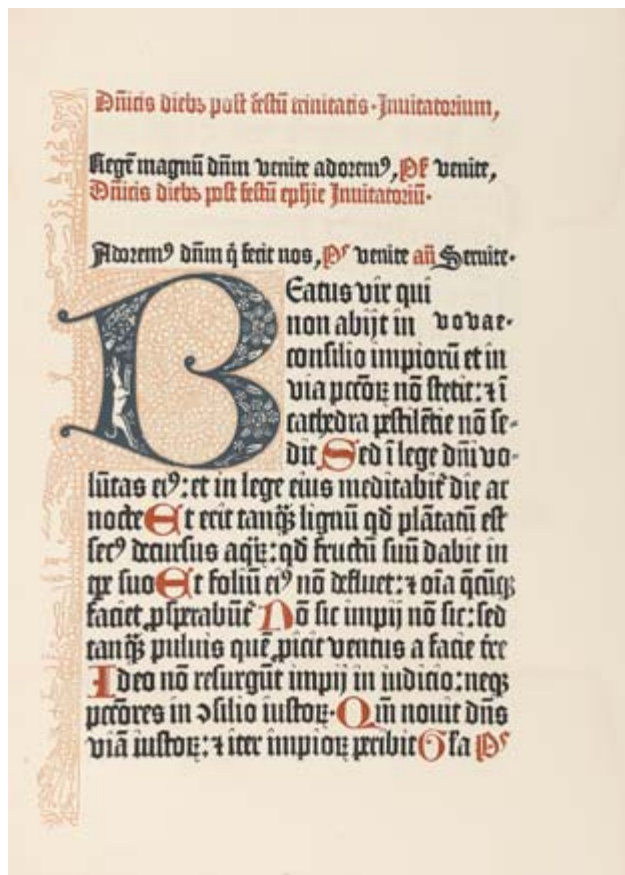 Dñicis diebꝫ post festū trinitatis · Inuitatorium,
Regē magnū dñm venite adoremꝰ, Ps̄ venite,
Dñicis diebꝫ post festū ephie Inuitatoriū ·
Adoremꝰ dñm q̇ fecit nos, Ps̄ venite añ Seruite ·
Beatus vir qui
non abijt in vovae ·
consilio impiorū et in
via pccōꝝ nō stetit: ⁊ ī
cathedra pestilētie nō se-
dit Sed ī lege dñi vo-
lūtas eiꝰ: et in lege eius meditabit᷑ die ac
nocte Et erit tanqꝫ lignū qd̄ plātatū est
secꝰ decursus aqꝝ: qd̄ fructū suū dabit in
tꝑe suo Et foliū eiꝰ nō defluet: ⁊ oīa q̄cūqꝫ
faciet ꝓsperabūt᷑ Nō sic impij nō sic: sed
tanqꝫ puluis quē ꝓicit ventus a facie tre
Ideo nō resurgūt impij in iudicio: neqꝫ
pccōres in ↄsilio iustoꝝ · Qm̄ nouit dñs
viā iustoꝝ: ⁊ iter impioꝝ peribit Gła Ps̄